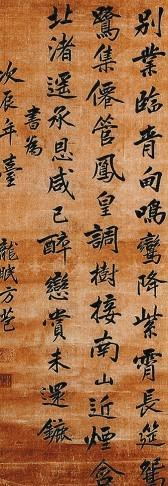 別業臨青甸鳴鑾降紫霄長筵鵷
鷺集僊管鳳皇調樹接南山近煙含
北渚遥承恩咸已醉戀賞未還鑣
書為
次辰年臺
龍眠方苞